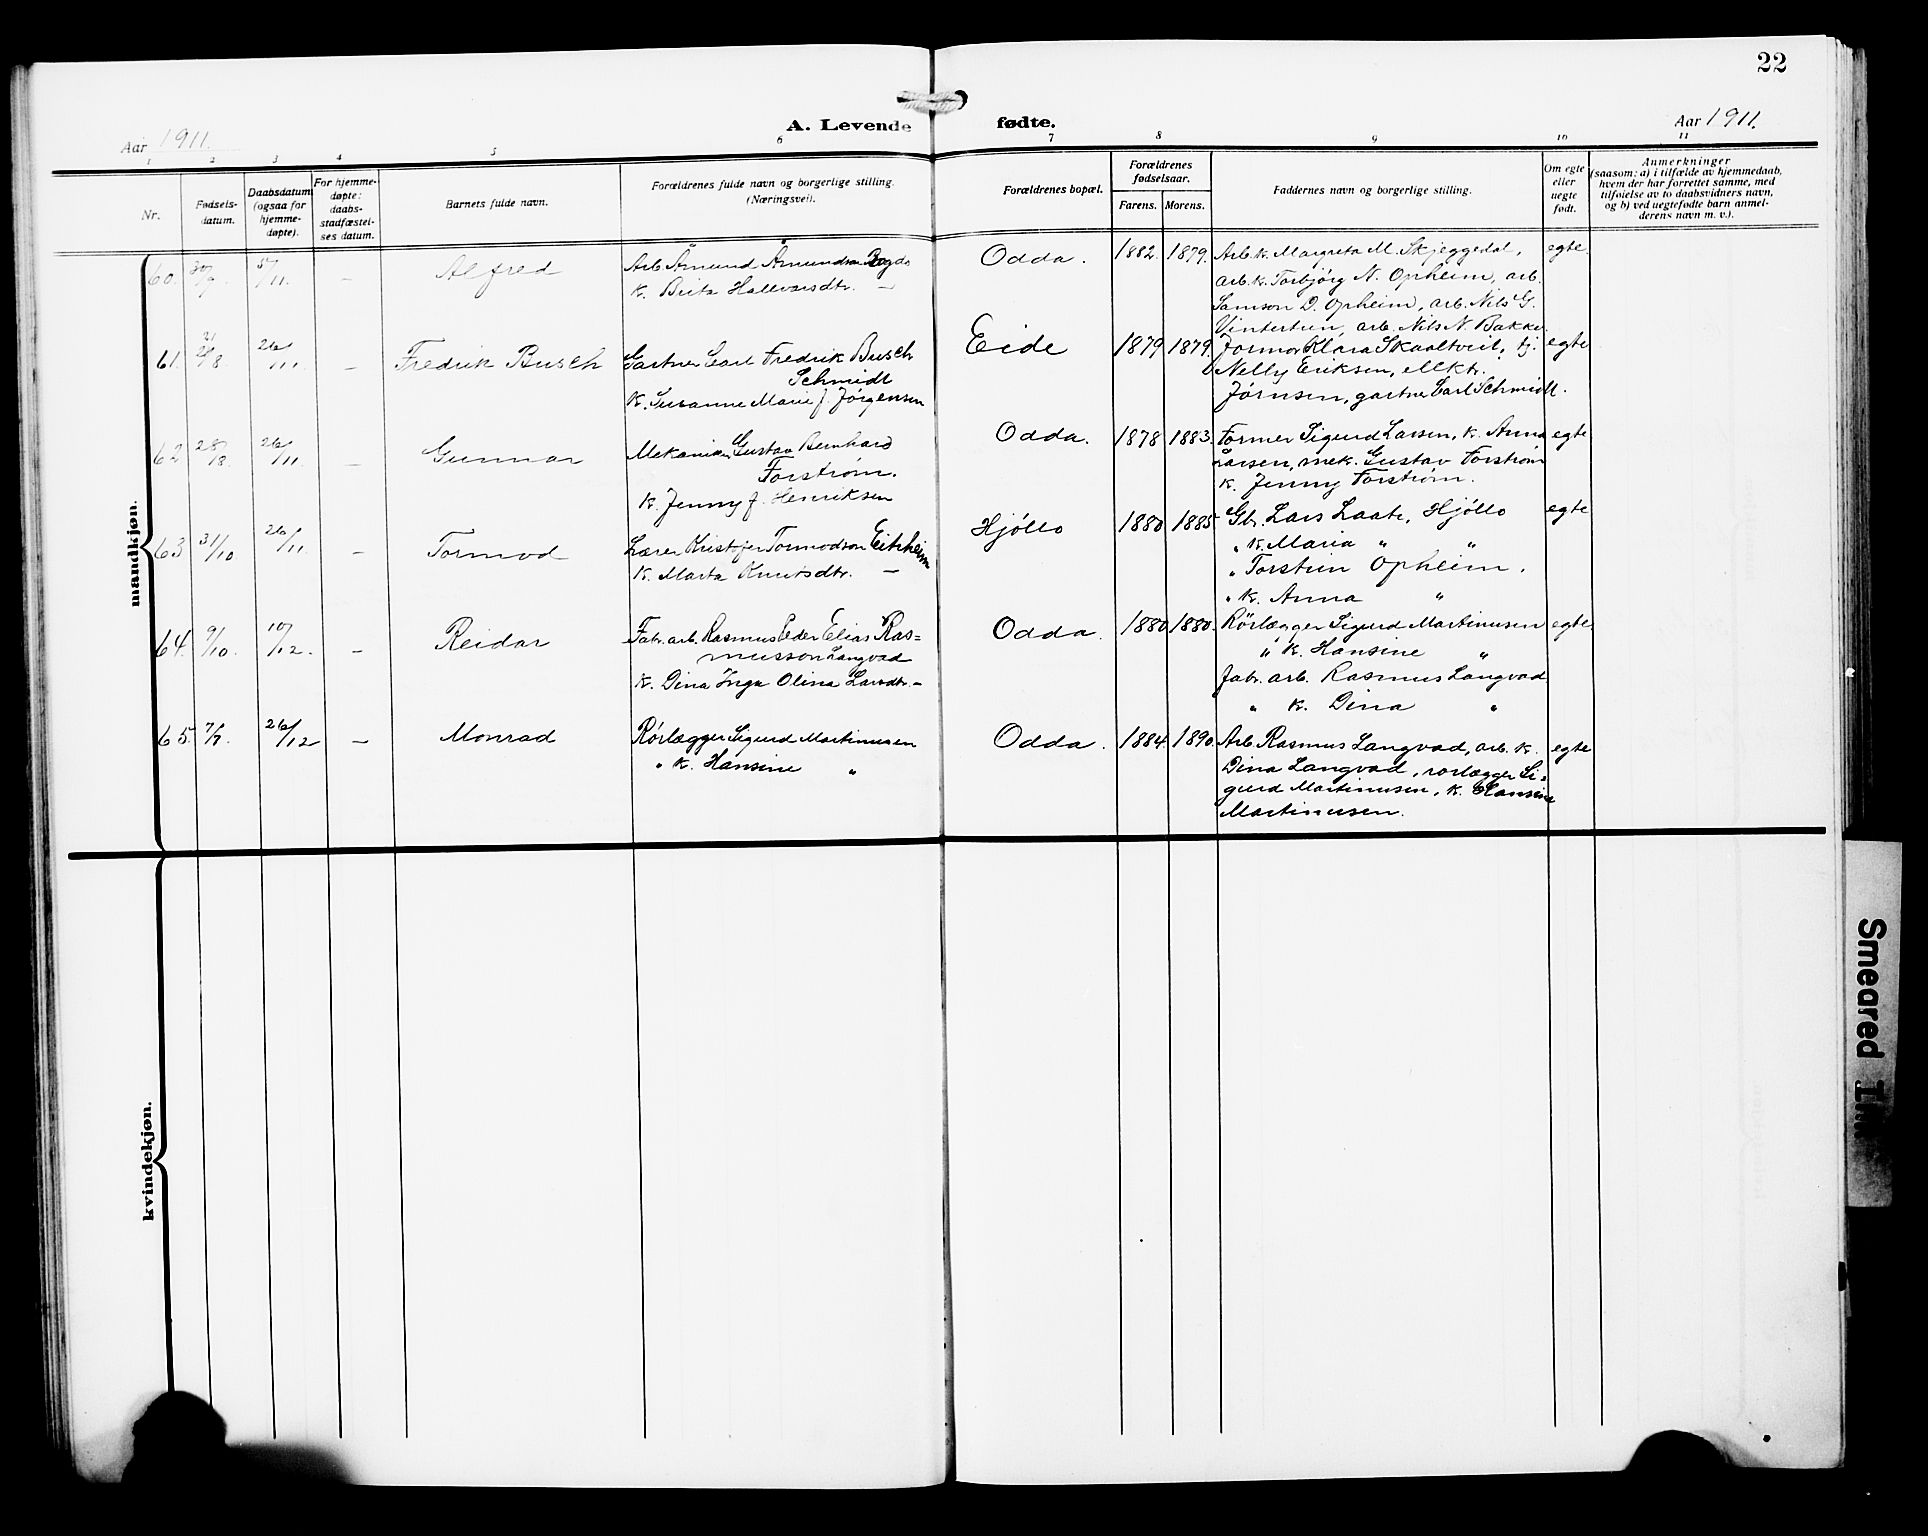 22
Aar 1911.
A. Levende fødte.
Aar 1911.
1 2 3 4 5 6 7 8 9 10 11
Nr.
Fødsels-
datum.
Daabsdatum
(ogsaa for
hjemme-
døpte).
For hjemme-
døpte:
daabs-
stadfæstel-
ses datum.
Barnets fulde navn.
Forældrenes fulde navn og borgerlige stilling.
(Næringsvei).
Forældrenes bopæl.
Forældrenes
fødselsaar.
Farens. Morens.
Faddernes navn og borgerlige stilling.
Om egte
eller
uegte
født.
Anmerkninger
(saasom: a) i tilfælde av hjemmedaab,
hvem der har forrettet samme, med
tilføielse av to daabsvidners navn,
og b) ved uegtefødte barn anmel-
derens navn m. v.).
mandkjøn.
60. 30/9. 5/11. – Alfred
Arb. Åmund Åmundson Bogda
K. Brita Hallvarsdtr. –
Odda. 1882. 1879.
Arb. k. Margreta M. Skjeggedal,
arb. k. Torbjørg N. Opheim, arb.
Samson D. Opheim, arb. Nils G.
Vintertun, arb. Nils N. Bakke.
egte.
61. 21/8. 26/11. – Fredrik Busch
Gartner Carl Fredrik Busch
Schmidt
K. Susanne Marie f. Jørgensen
Eide 1879 1879.
Jormor Klara Skaaltveit, tj.
Nelly Eriksen, elktr.
Jørnsen, gartner Carl Schmidt.
egte
62 28/8. 26/11. – Gunnar
Mekaniker Gustav Bernhard
Forstrøm.
K. Jenny f. Henriksen
Odda. 1878 1883.
Former Sigurd Larsen, k. Anna
Larsen, mek. Gustav Forstrøm
K. Jenny Forstrøm.
egte
63 31/10 26/11. – Tormod
Lærer Kristofer Tormodson Eitrheim
K. Marta Knutsdtr. –
Hjøllo 1880 1885
Gbr. Lars Laate, Hjøllo
„ K. Maria „ „
„ Torstein Opheim.
„ K. Anna „
egte
64. 9/10. 10/12. – Reidar
Fabr. arb. Rasmus Peder Elias Ras-
musson Langvad
K. Dina Inga Olina Larsdtr. –
Odda. 1880 1880.
Rørlægger Sigurd Martinusen
„ K. Hansine „
Fabr. arb. Rasmus Langvad
„ K. Dina „
egte.
65. 7/7. 26/12 – Monrad
Rørlægger Sigurd Martinusen
„ K. Hansine „
Odda. 1884. 1890.
Arb. Rasmus Langvad, arb. k.
Dina Langvad, rørlægger Si-
gurd Martinusen, K. Hansine
Martinusen.
egte
kvindekjøn.
Smeared